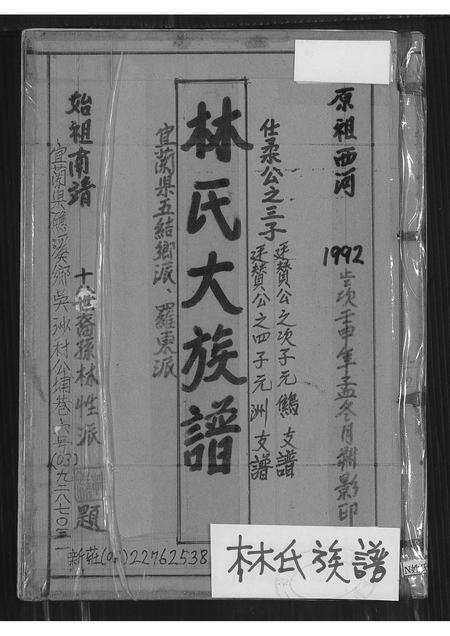 原祖西河
1992 歲次壬申年孟冬月 影印
仕柔公之三子
廷贊公之次子元鷍支譜
廷贊公之四子元洲支譜
林氏大族譜
宜蘭県五結鄉派、羅東派
始祖南靖
十 世裔孫林性派 題
宜蘭県礁溪鄉吳沙村公埔巷 号(03)九二八七〇三一
新莊(02)22762538
林氏族譜